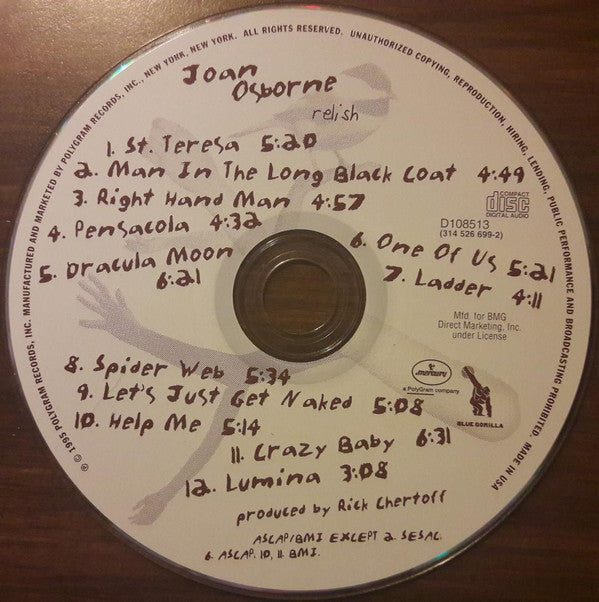 ℗ © 1995 POLYGRAM RECORDS, INC. MANUFACTURED AND MARKETED BY POLYGRAM RECORDS, INC., NEW YORK, NEW YORK. ALL RIGHTS RESERVED. UNAUTHORIZED COPYING, REPRODUCTION, HIRING, LENDING, PUBLIC PERFORMANCE AND BROADCASTING PROHIBITED. MADE IN USA
Joan
Osborne
relish
1. St. Teresa 5:20
2. Man In The Long Black Coat 4:49
3. Right Hand Man 4:57
4. Pensacola 4:32
5. Dracula Moon
6:21
6. One Of Us 5:21
7. Ladder 4:11
COMPACT
disc
DIGITAL AUDIO
D108513
(314 526 699-2)
Mfd. for BMG
Direct Marketing, Inc.
under License
8. Spider Web 5:34
9. Let's Just Get Naked 5:08
10. Help Me 5:14
11. Crazy Baby 6:31
12. Lumina 3:08
mercury
a PolyGram company
BLUE GORILLA
produced by Rick Chertoff
ASCAP/BMI EXCEPT 2. SESAC.
6. ASCAP. 10, 11. BMI.